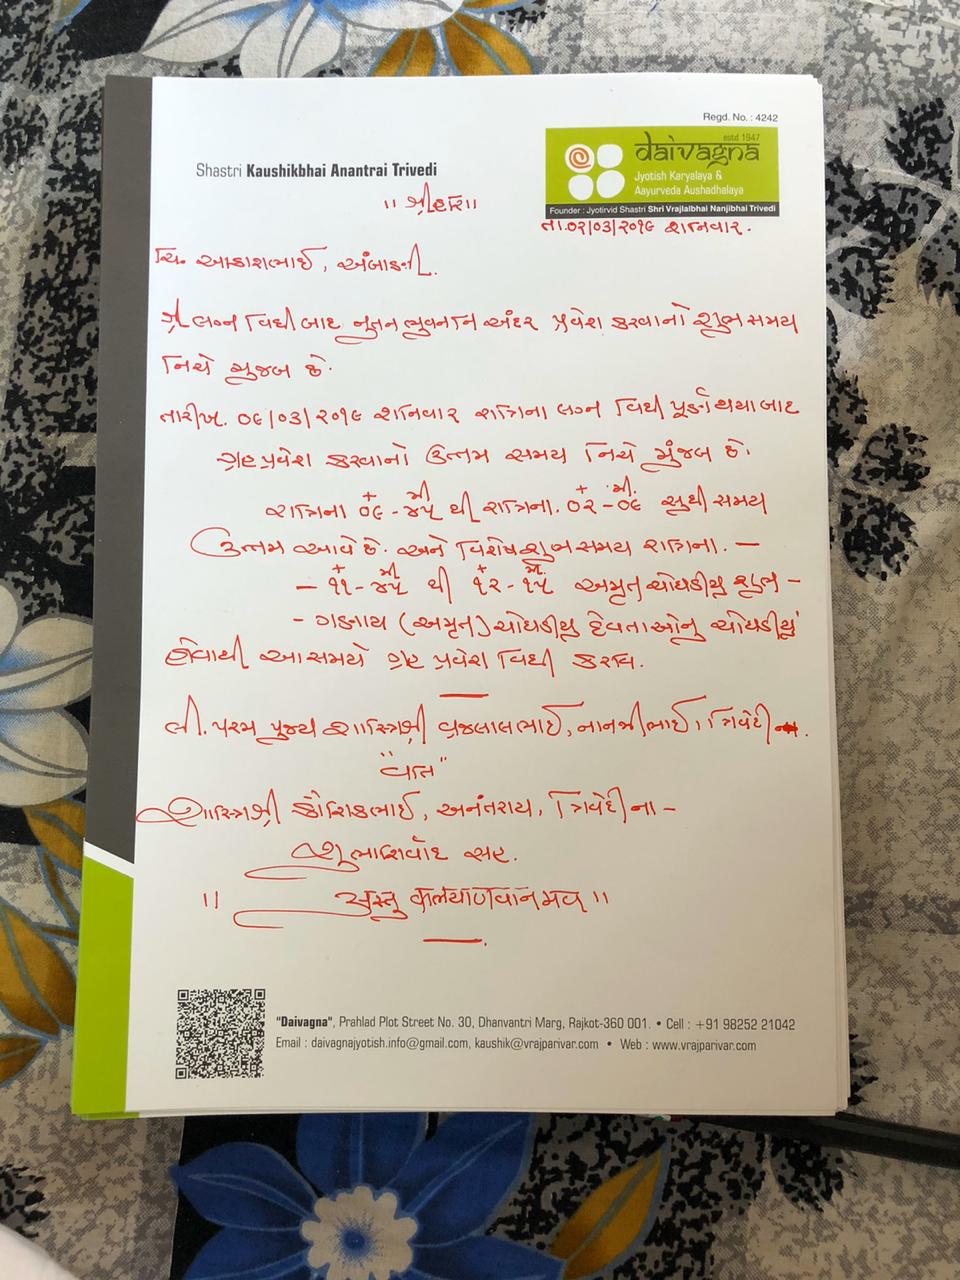 Regd. No. : 4242
estd 1947
daivagna
Jyotish Karyalaya &
Aayurveda Aushadhalaya
Founder : Jyotirvid Shastri Shri Vrajlalbhai Nanjibhai Trivedi
Shastri Kaushikbhai Anantrai Trivedi
।। શ્રીહરિ ।।
તા.૦૨/૦૩/૨૦૧૯ શનિવાર.
ચિ. આકાશભાઈ, અંબાકની.
શ્રી લગ્ન વિધી બાદ નુતન ભુવનનિ અંદર પ્રવેશ કરવાનો શુભ સમય
નિચે મુજબ છે.
તારીખ. ૦૯/૦૩/૨૦૧૯ શનિવાર રાત્રિના લગ્ન વિધી પૂર્ણ થયા બાદ
ગ્રહ પ્રવેશ કરવાનો ઉત્તમ સમય નિચે મુંજબ છે.
રાત્રિના ૦૯ - ૪૫ થી રાત્રિના. ૦૨ - ૦૯ સુધી સમય
ઉત્તમ આવે છે. અને વિશેષ શુભ સમય રાત્રિના. —
- ૧૧ - ૪૫ થી ૧૨ - ૧૫ અમૃત ચોઘડીયુ શુભ -
- ગણાય (અમૃત) ચોઘડીયુ દેવતાઓનુ ચોઘડીયું
હોવાથી આ સમયે ગ્રહ પ્રવેશ વિધી કરવિ.
લી. પરમ પુજ્ય શાસ્ત્રિશ્રી વ્રજલાલભાઈ, નાનજીભાઈ, ત્રિવેદી
"વતિ"
શાસ્ત્રિશ્રી કૌશિકભાઈ, અનંતરાય, ત્રિવેદી ના -
શુભાશિર્વાદ સહ.
।। અસ્તુ કલ્યાણવાન ભવ ।।
"Daivagna", Prahlad Plot Street No. 30, Dhanvantri Marg, Rajkot-360 001. • Cell : +91 98252 21042
Email : daivagnajyotish.info@gmail.com, kaushik@vrajparivar.com • Web : www.vrajparivar.com